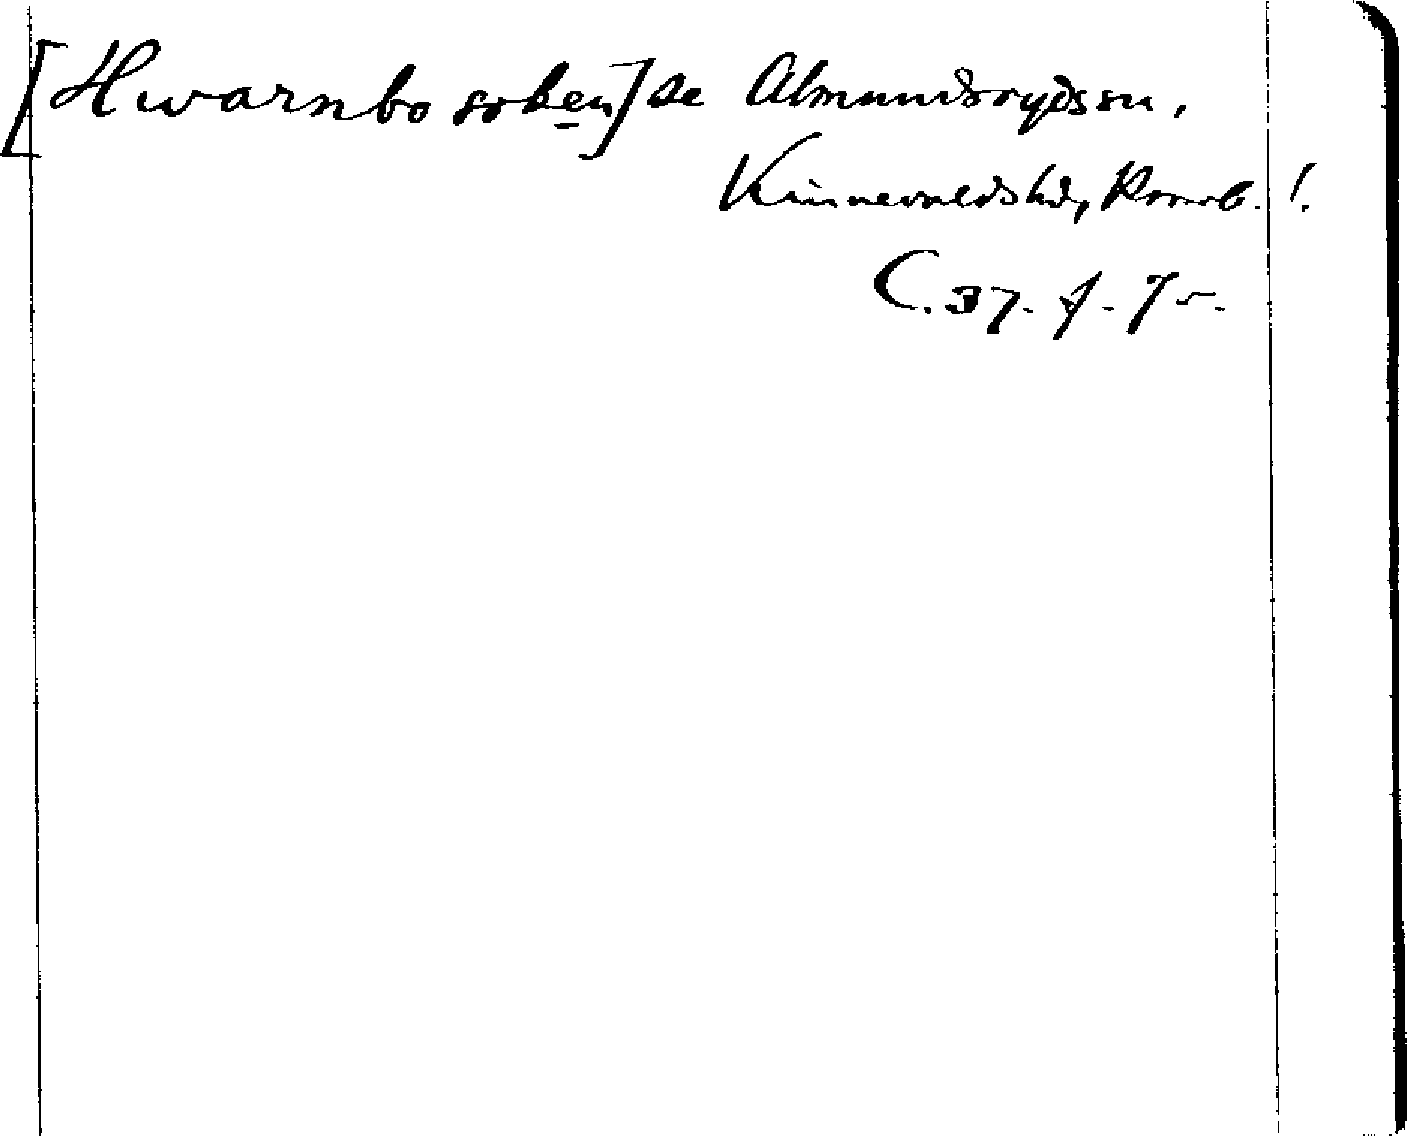 [Hwarnbo soken] se Almundsryds sn,
Kinnevalds hd, Kronob. l.
C. 37. f. 75.